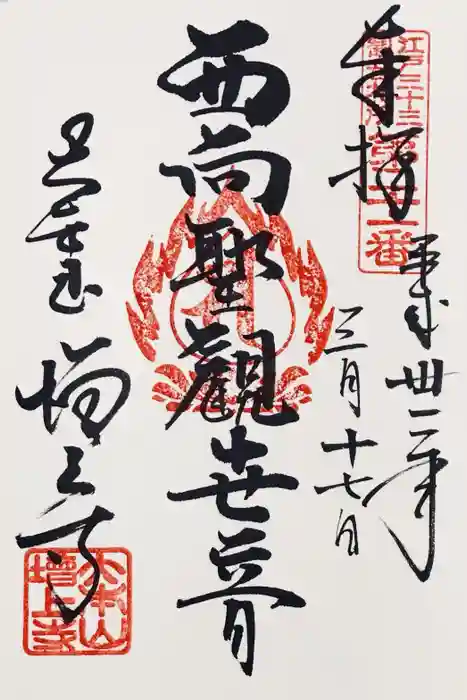 江戸三十三
観音札所
第二十一番
奉拝
平成丗一年
三月十七日
西向聖観世音
増上寺
大本山
増上寺